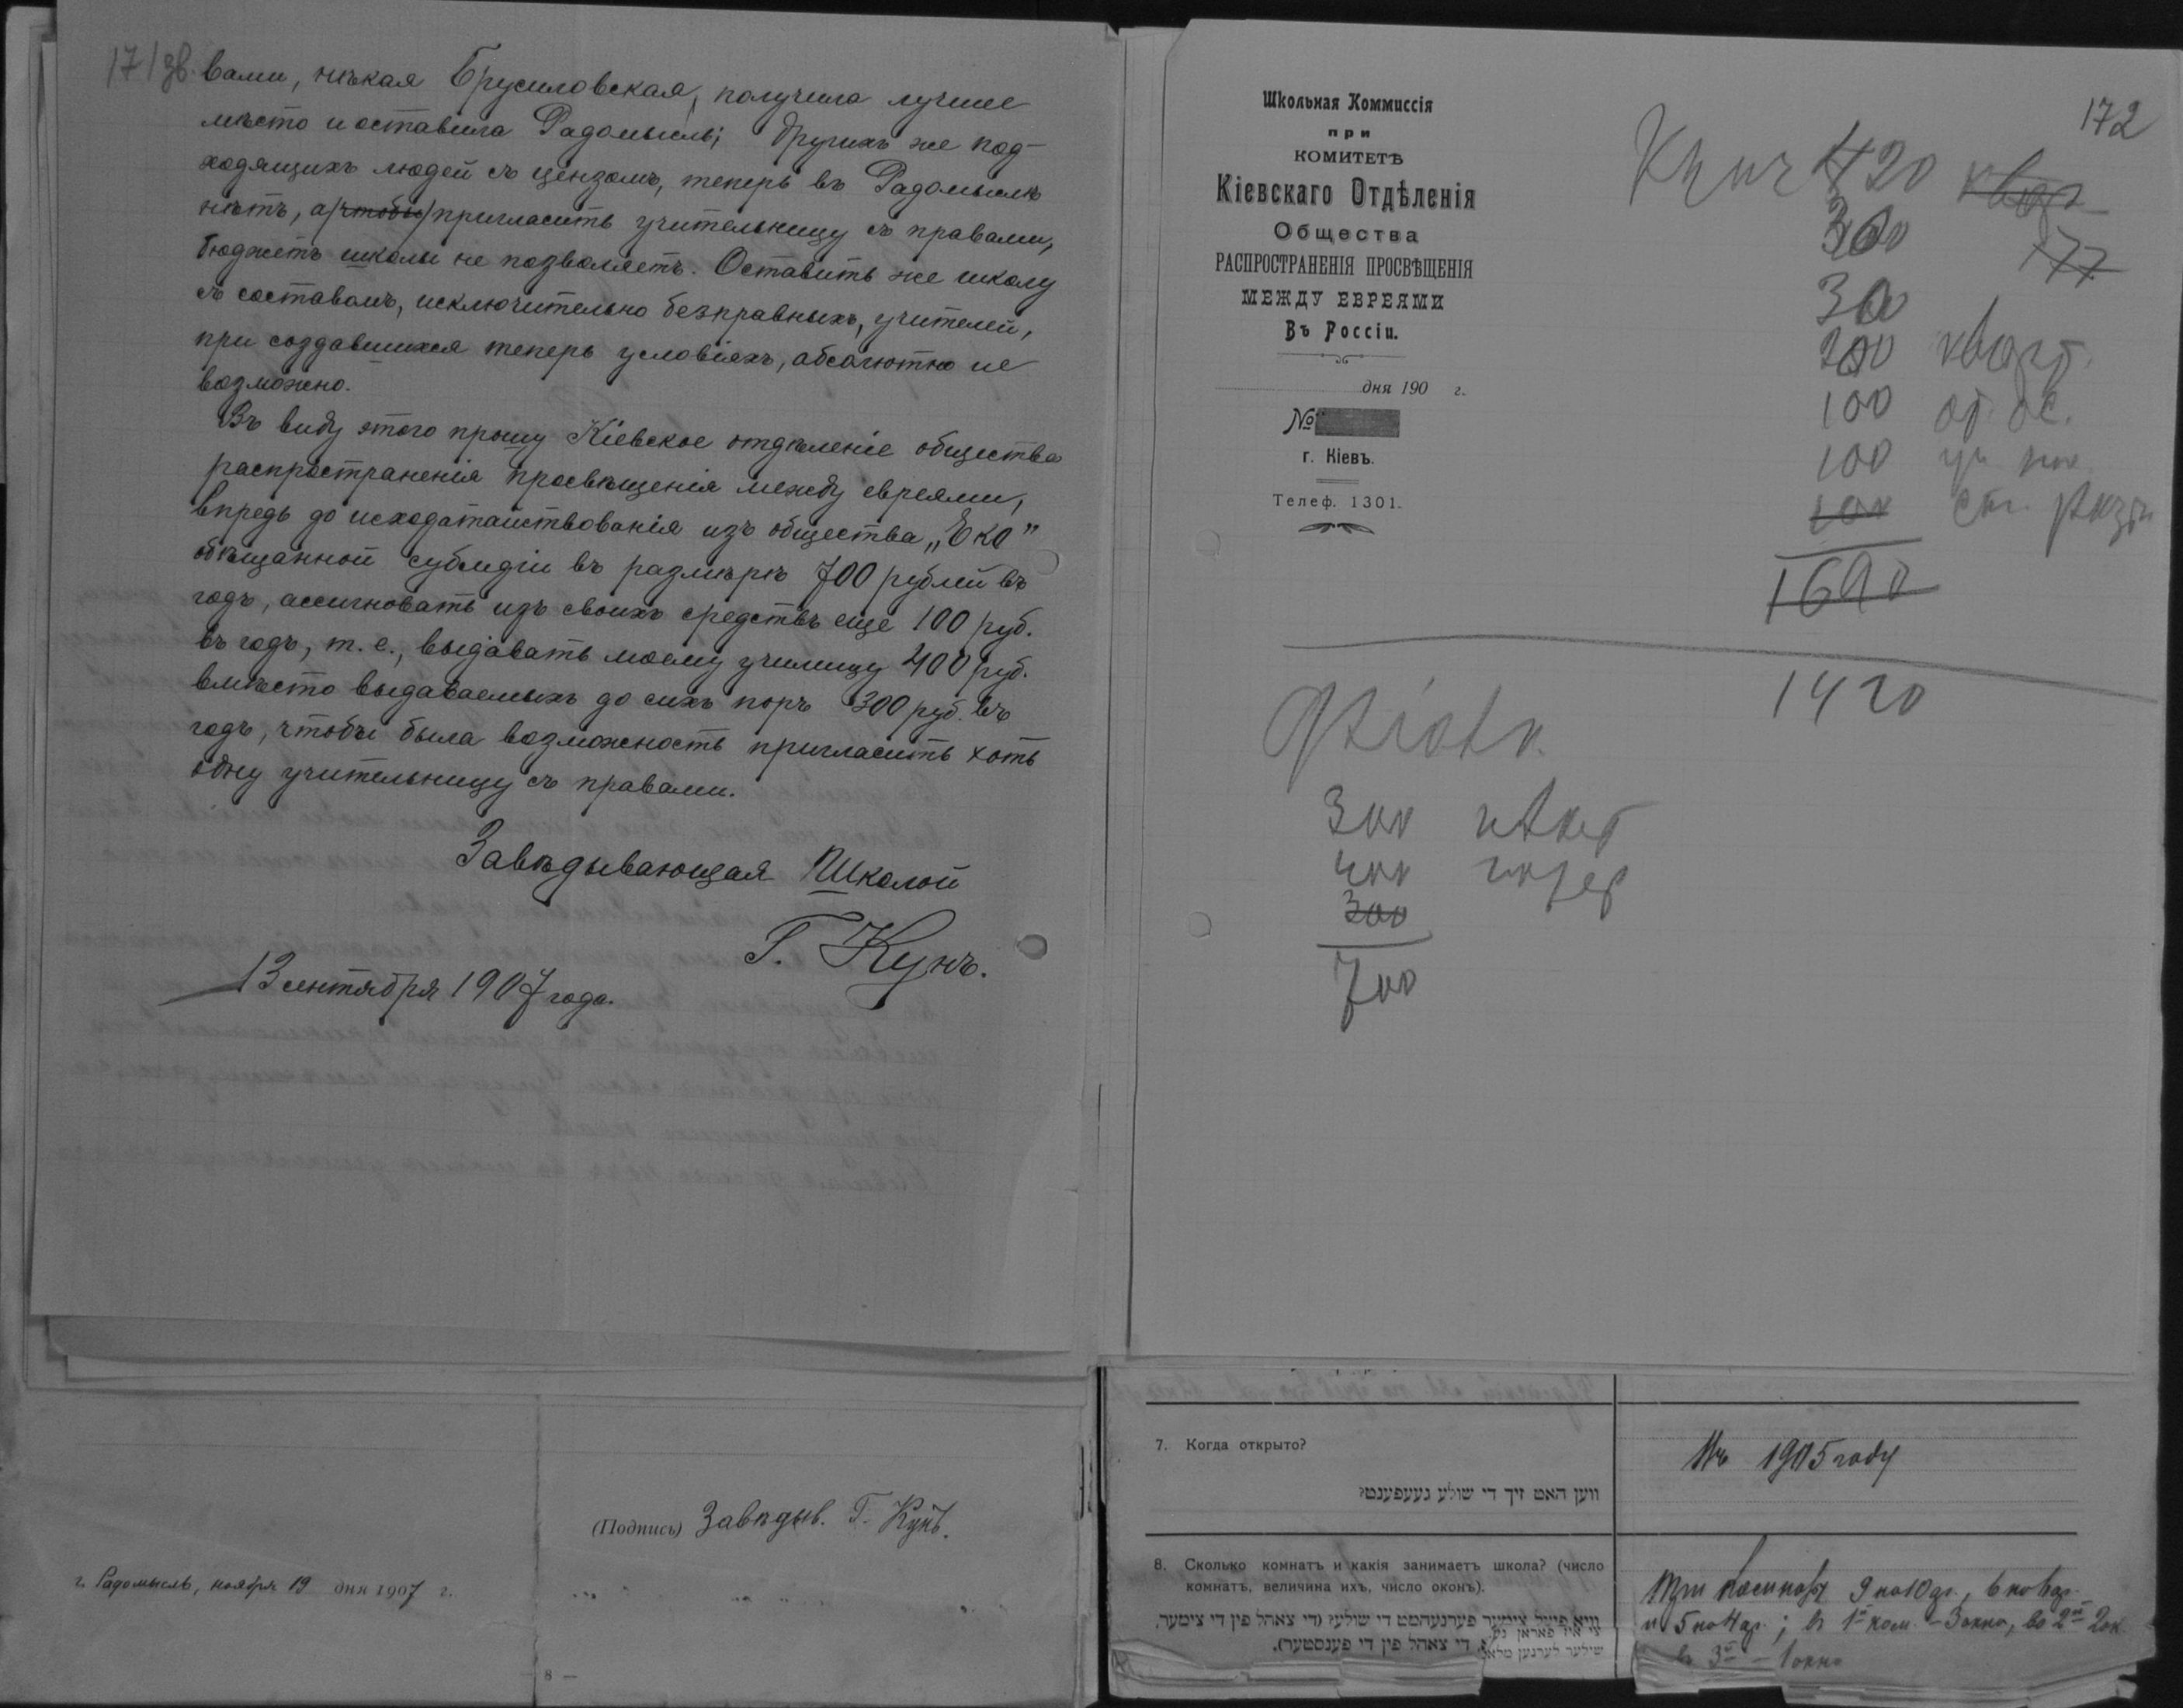 171 зв.
вами, нѣкая Брусиловская, получила лучшее
мѣсто и оставила Радомысль; других же под-
ходящихъ людей съ цензомъ, теперь въ Радомыслѣ
нѣтъ, а (чтобы) пригласить учительницу съ правами,
бюджетъ школы не позволяетъ. Оставить же школу
съ составомъ, исключительно безправныхъ, учителей,
при создавшихся теперь условіяхъ, абсолютно не
возможно.
Въ виду этого прошу Кіевское отдѣленіе общества
распространенія просвѣщенія между евреями,
впредь до исходатайствованія изъ общества „Еко"
обѣщанной субсидіи въ размѣрѣ 700 рублей въ
годъ, ассигновать изъ своихъ средствъ еще 100 руб.
въ годъ, т. е., выдавать моему училищу 400 руб.
вмѣсто выдаваемыхъ до сихъ поръ 300 руб. въ
годъ, чтобы была возможность пригласить хоть
одну учительницу съ правами.
Завѣдывающая Школой
Г. Кунъ.
13 сентября 1907 года.
(Подпись) Завѣдыв. Г. Кунъ.
г. Радомысль, ноября 19 дня 1907 г.
8 —
Школьная Коммиссія
при
КОМИТЕТѢ
Кіевскаго Отдѣленія
Общества
РАСПРОСТРАНЕНІЯ ПРОСВѢЩЕНІЯ
МЕЖДУ ЕВРЕЯМИ
Въ Россіи.
дня 190 г.
№
г. Кіевъ.
Телеф. 1301.
172
420
300
177
300
200 кварт.
100
100
100
1690
1420
300
400
300
700
7. Когда открыто?
ווען האט זיך די שולע געעפענט?
Въ 1905 году
8. Сколько комнатъ и какія занимаетъ школа? (число
комнатъ, величина ихъ, число оконъ).
וויא פיעל צימער פערנעהמט די שולע? (די צאהל פין די צימער,
די צאהל פין די פענסטער).
Три комнаты 9 на 10 ар., 6 на 6 ар.
и 5 на 4 ар.; въ 1й ком. – 3 окна, во 2й 2 ок.
въ 3й – 1 окно